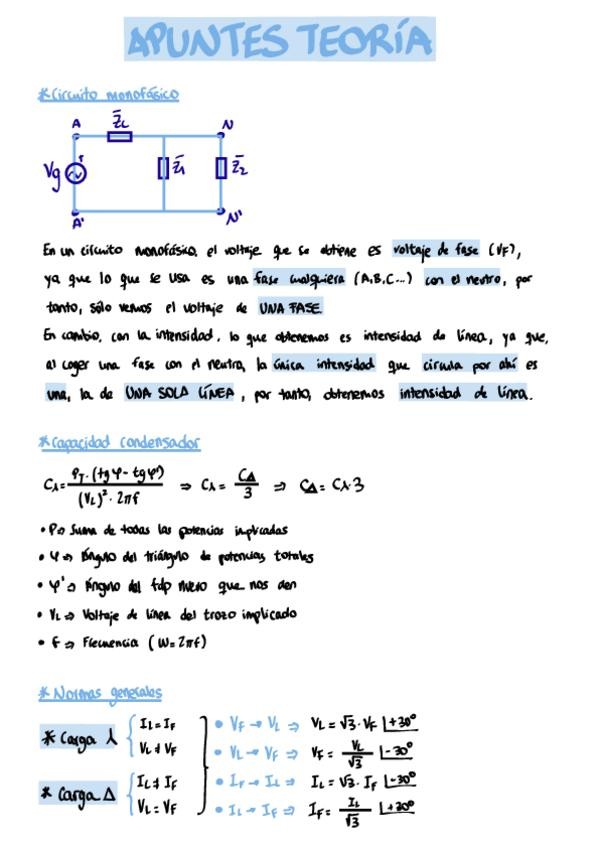 APUNTES TEORÍA
* Circuito monofásico
A Z̄L N
Vg Z̄1 Z̄2
A' N'
En un circuito monofásico, el voltaje que se obtiene es voltaje de fase (VF),
ya que lo que se usa es una fase cualquiera (A,B,C...) con el neutro, por
tanto, sólo vemos el voltaje de UNA FASE.
En cambio, con la intensidad, lo que obtenemos es intensidad de línea, ya que,
al coger una fase con el neutro, la única intensidad que circula por ahí es
una, la de UNA SOLA LÍNEA, por tanto, obtenemos intensidad de línea.
* Capacidad condensador
C⅄ = PT · (tg φ - tg φ') / (VL)² · 2πf ⇒ C⅄ = CΔ / 3 ⇒ CΔ = C⅄·3
• P ⇒ Suma de todas las potencias implicadas
• φ ⇒ Ángulo del triángulo de potencias totales
• φ' ⇒ Ángulo del fdp nuevo que nos den
• VL ⇒ Voltaje de línea del trozo implicado
• f ⇒ Frecuencia (W = 2πf)
* Normas generales
* Carga ⅄ { IL = IF
VL ≠ VF
* Carga Δ { IL ≠ IF
VL = VF
• VF → VL ⇒ VL = √3 · VF ∠+30°
• VL → VF ⇒ VF = VL / √3 ∠-30°
• IF → IL ⇒ IL = √3 · IF ∠-30°
• IL → IF ⇒ IF = IL / √3 ∠+30°